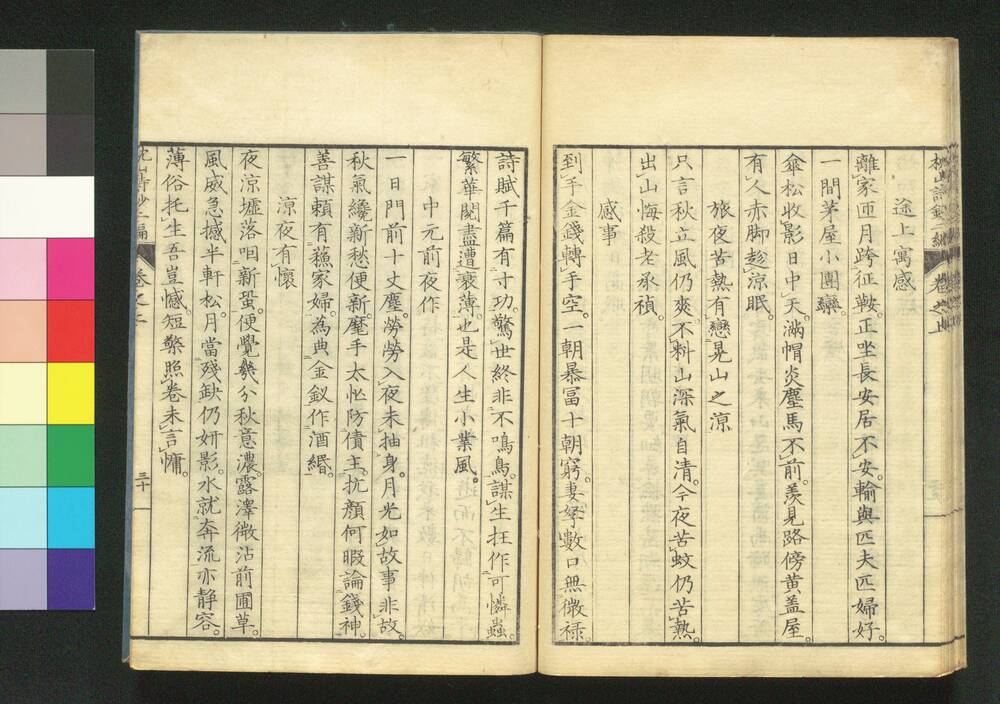 途上寓感
離家匝月跨征鞍。正坐長安居不安。輸與匹夫匹婦好。
一間茅屋小團欒。
傘松收影日中天。滿帽炎塵馬不前。羨見路傍黃蓋屋。
有人赤脚趁涼眠。
旅夜苦熱有戀晃山之涼
只言秋立風仍爽。不料山深氣自清。今夜苦蚊仍苦熱。
出山悔殺老承禎。
感事
到手金錢轉手空。一朝暴冨十朝窮。妻孥數口無微祿。
詩賦千篇有寸功。驚世終非不鳴鳥。謀生抂作可憐蟲。
繁華閱盡遭衰薄。也是人生小業風。
中元前夜作
一日門前十丈塵。勞勞入夜未抽身。月光如故事非故。
秋氣纔新愁便新。麾手太忙防債主。抗顏何暇論錢神。
善謀頼有蘓家婦。為典金釵作酒緡。
涼夜有懷
夜涼墟落咽新蛩。便覺幾分秋意濃。露澤微沾前圃草。
風威急撼半軒松。月當殘缺仍妍影。水就奔流亦静容。
薄俗托生吾豈憾。短檠照卷未言慵。
枕山詩鈔二編
卷之二
三十